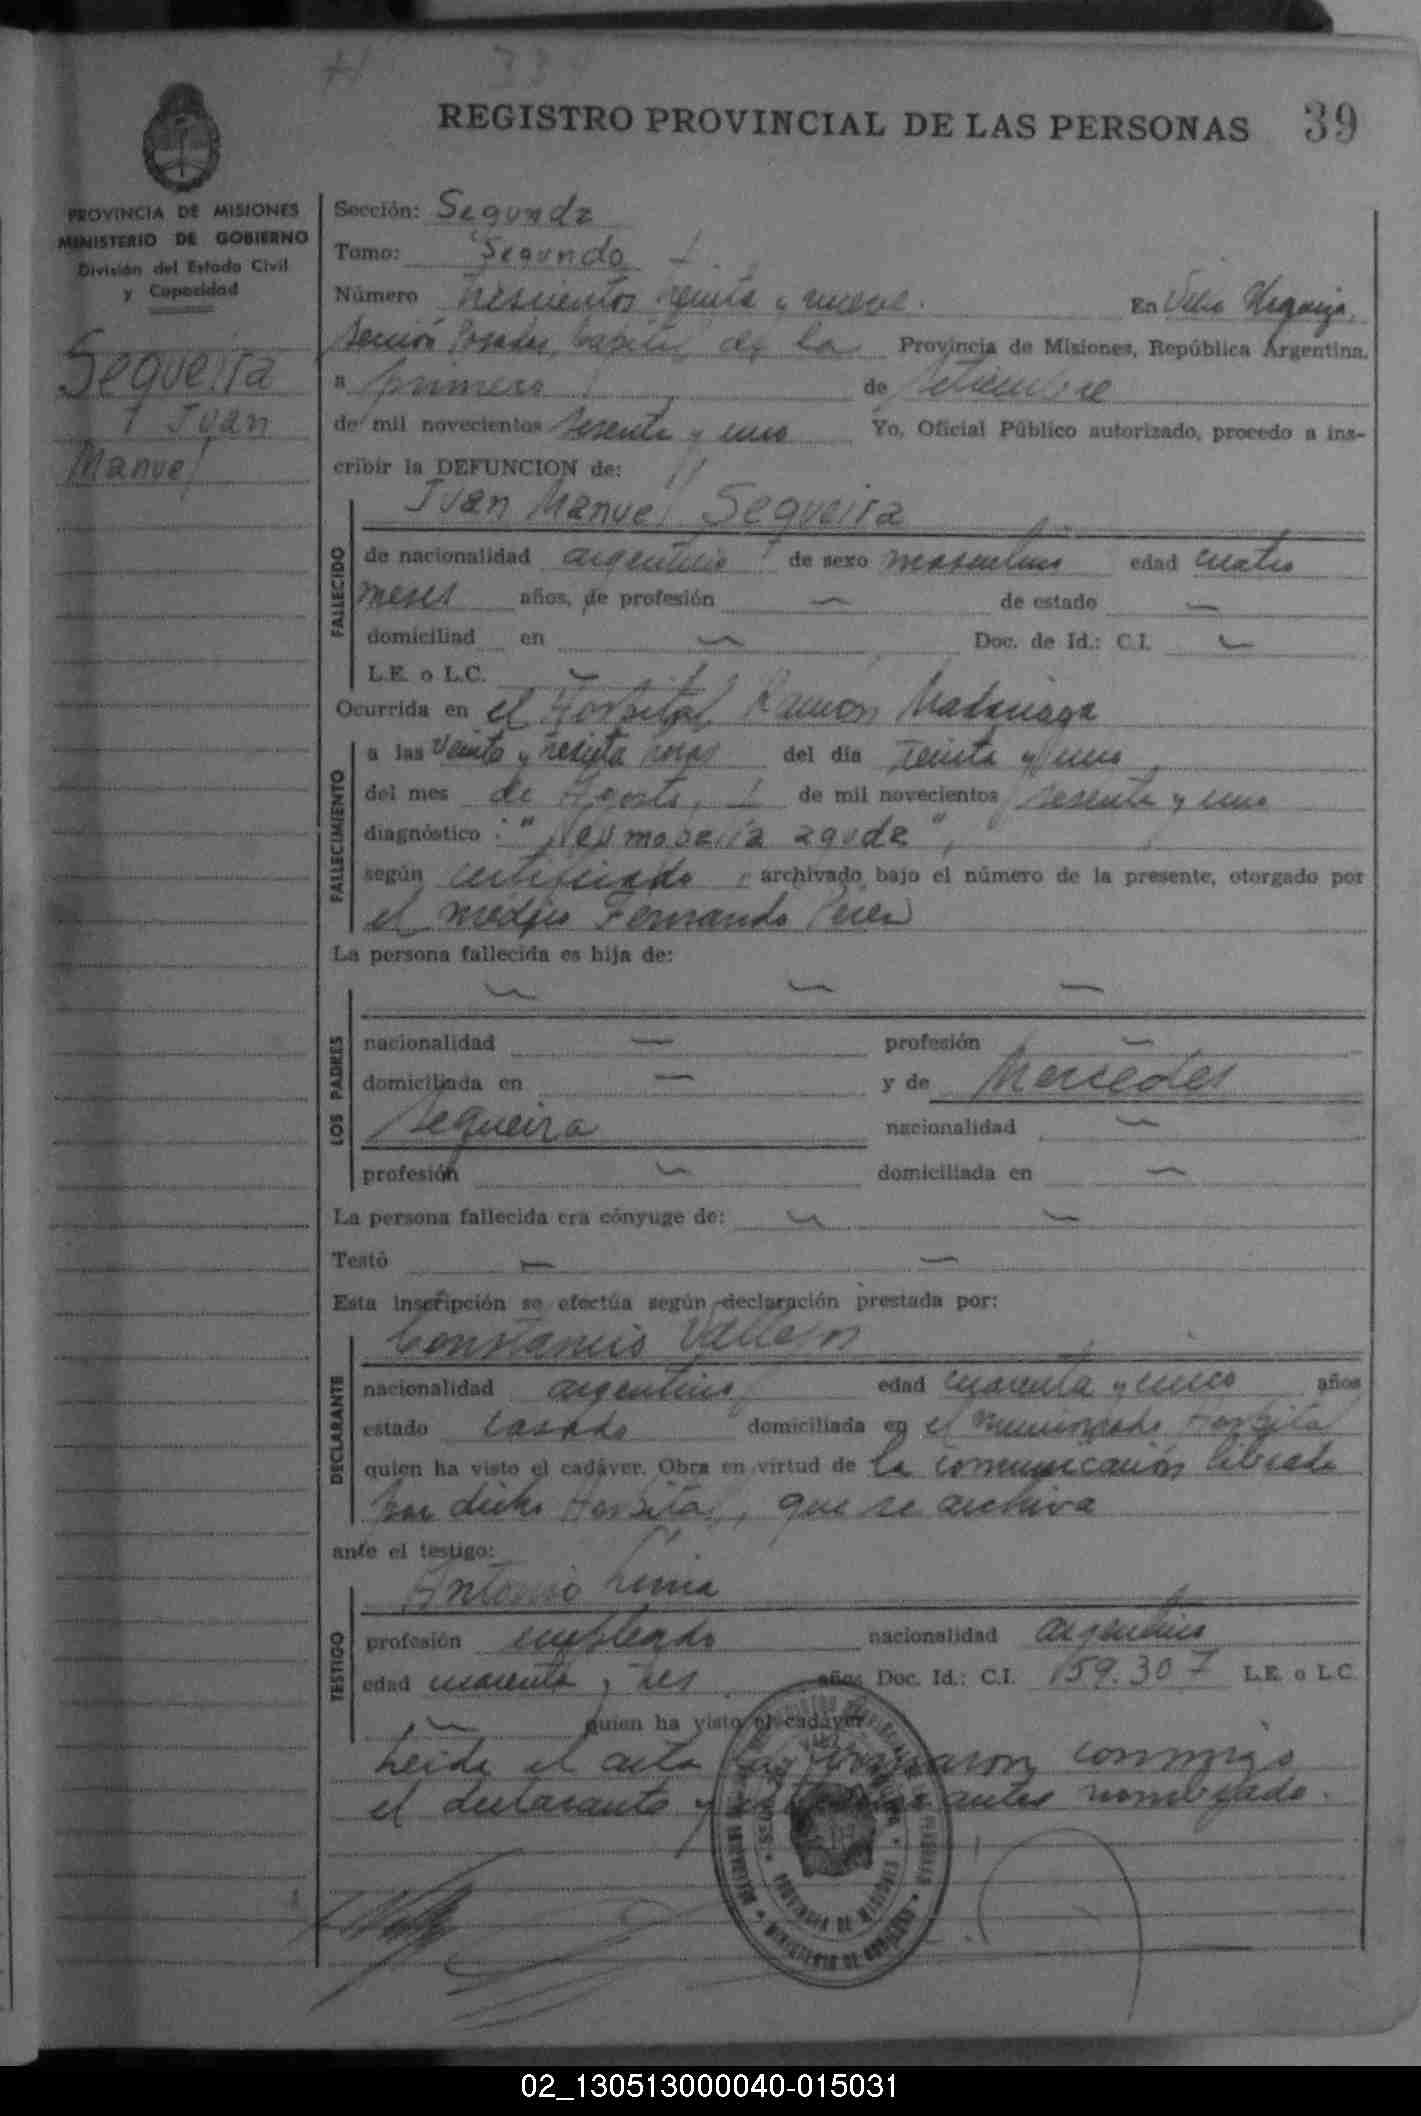 REGISTRO PROVINCIAL DE LAS PERSONAS 39
PROVINCIA DE MISIONES
MINISTERIO DE GOBIERNO
División del Estado Civil
y Capacidad
Sequeira
Juan
Manuel
Sección: Segunda
Tomo: Segundo
Número Trescientos treinta y nueve. En Villa Urquiza,
sección Posadas, Capital de la Provincia de Misiones, República Argentina,
a primero de setiembre
de mil novecientos sesenta y uno Yo, Oficial Público autorizado, procedo a ins-
cribir la DEFUNCION de:
Juan Manuel Sequeira
FALLECIDO
de nacionalidad argentino de sexo masculino edad cuatro
meses años, de profesión — de estado —
domiciliad en — Doc. de Id.: C.I. —
L.E. o L.C. —
Ocurrida en el Hospital Ramón Madariaga
FALLECIMIENTO
a las veinte y treinta horas del día treinta y uno
del mes de Agosto, de mil novecientos sesenta y uno
diagnóstico : "Neumopatía aguda",
según certificado, archivado bajo el número de la presente, otorgado por
el médico Fernando Pérez
La persona fallecida es hija de:
— — —
LOS PADRES
nacionalidad — profesión —
domiciliada en — y de Mercedes
Sequeira nacionalidad —
profesión — domiciliada en —
La persona fallecida era cónyuge de: — —
Testó — —
Esta inscripción se efectúa según declaración prestada por:
Constancio Vallejos
DECLARANTE
nacionalidad argentino edad cuarenta y cinco años
estado casado domiciliada en el mencionado Hospital
quien ha visto el cadáver. Obra en virtud de la comunicación librada
por dicho Hospital, que se archiva
ante el testigo:
Antonio
TESTIGO
profesión empleado nacionalidad argentino
edad cuarenta y tres años Doc. Id.: C.I. 159.307 L.E. o L.C.
— quien ha visto el cadáver
Leída el acta la firmaron conmigo
el declarante y antes nombrado.
PROVINCIA DE MISIONES
MINISTERIO DE GOBIERNO
02_130513000040-015031